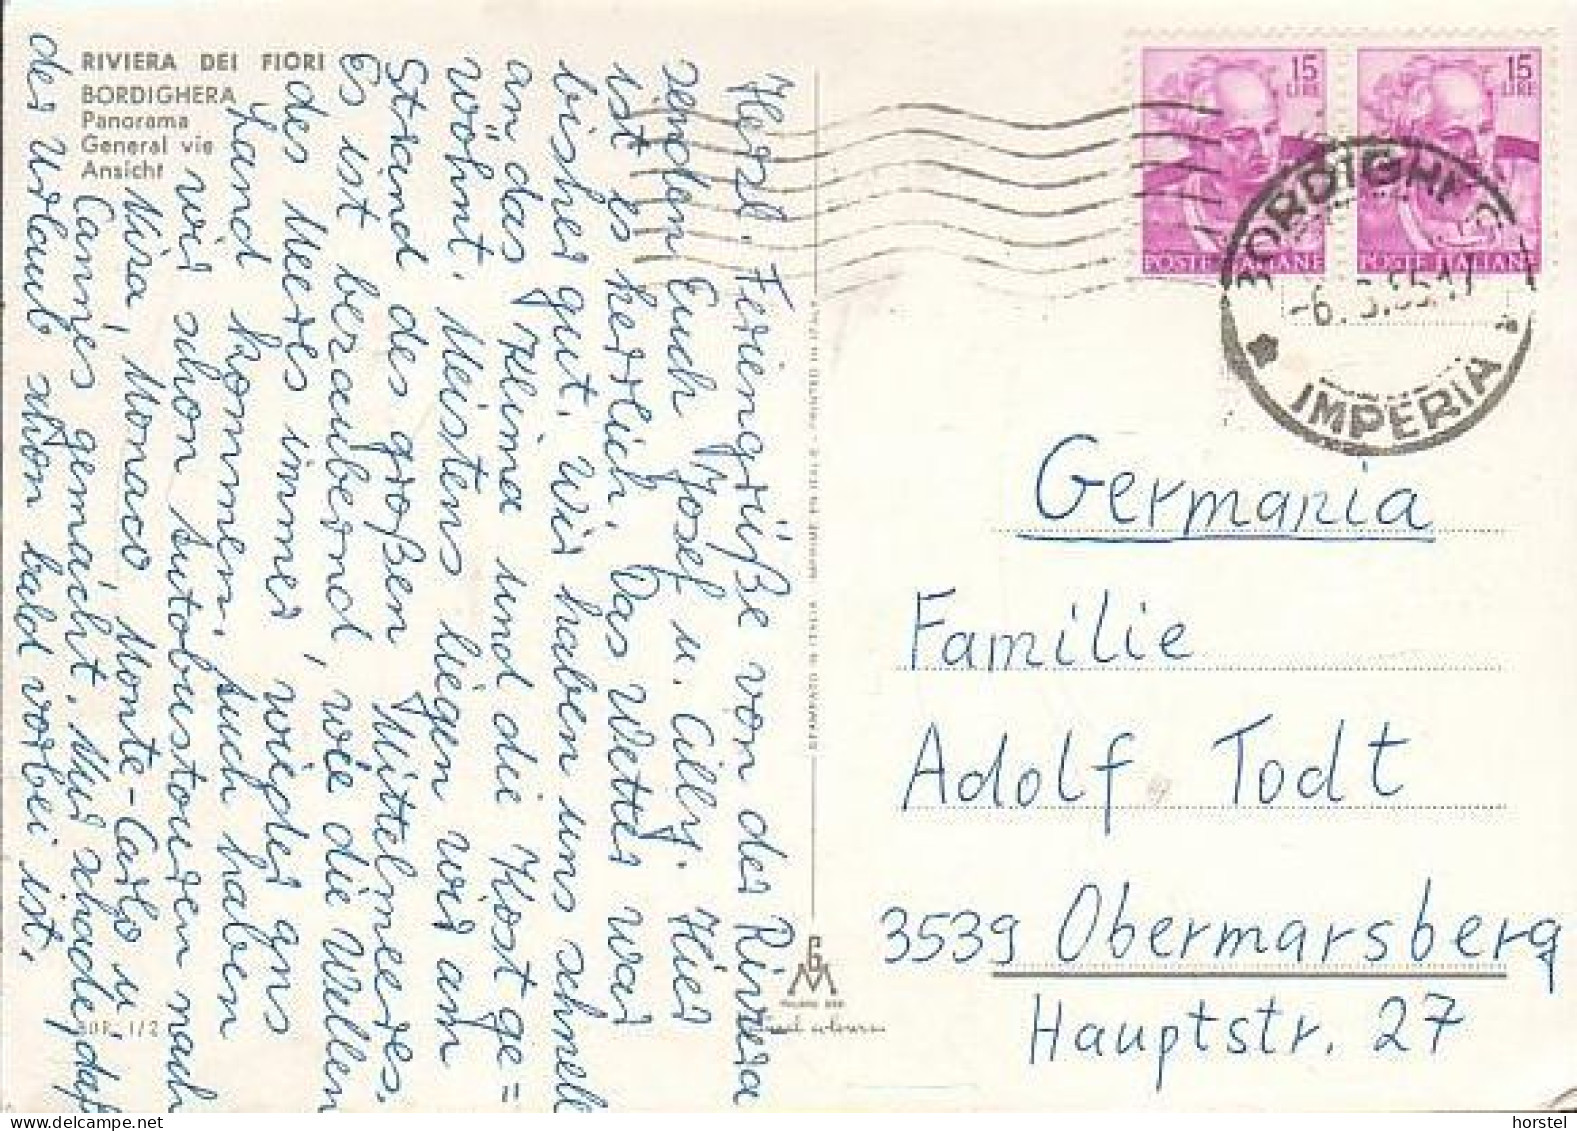 RIVIERA DEI FIORI
BORDIGHERA
Panorama
General vie
Ansicht
Herzl. Feriengrüße von der Riviera
senden Euch Josef u. Cilly. Hier
ist es herrlich. Das Wetter war
bisher gut. Wir haben uns schnell
an das Klima und die Kost ge=
wöhnt. Meistens liegen wir am
Strand des großen Mittelmeeres.
Es ist bezaubernd, wie die Wellen
des Meeres immer wieder ans
Land kommen. Auch haben
wir schon Autobustouren nach
Nizza, Monaco, Monte-Carlo u.
Cannes gemacht. Nur schade, daß
der Urlaub schon bald vorbei ist.
1/2
STAMPATO IN ITALIA - IMPRIMÉ EN ITALIE - PRINTED IN ITALY
MILANO
15
LIRE
POSTE ITALIANE
15
LIRE
POSTE ITALIANE
BORDIGHE
-6.
IMPERIA
Germania
Familie
Adolf Todt
3539 Obermarsberg
Hauptstr. 27
horstel